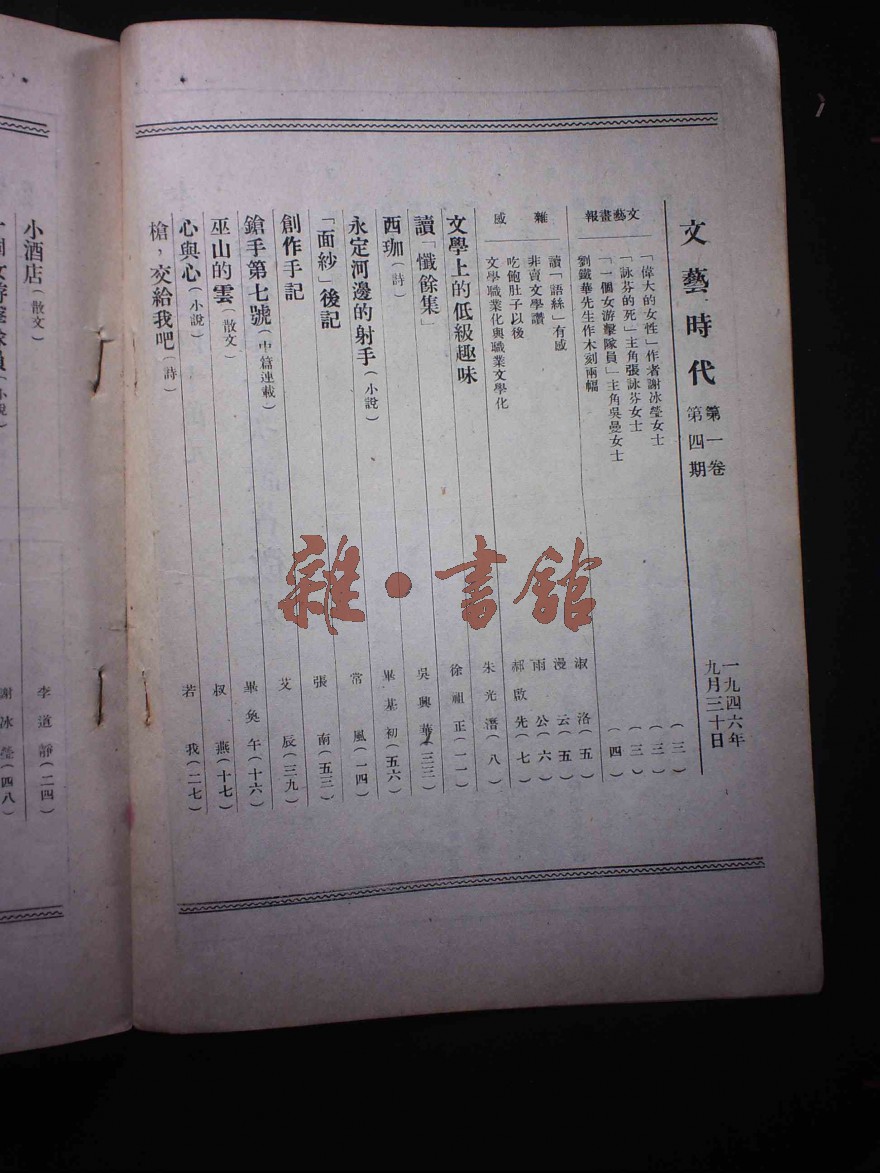 文藝時代 第一卷 第四期 一九四六年 九月三十日
文藝畫報
「偉大的女性」作者謝冰瑩女士 (三)
「詠芬的死」主角張詠芬女士 (三)
「一個女游擊隊員」主角吳曼女士 (三)
劉鐵華先生作木刻兩幅 (四)
雜感
讀「語絲」有感 淑洛(五)
非賣文學讚 漫云(五)
吃飽肚子以後 雨公(六)
文學職業化與職業文學化 郝啟先(七)
文學上的低級趣味 朱光潛(八)
讀「懺餘集」 徐祖正(一一)
西珈(詩) 吳興華(三三)
永定河邊的射手(小說) 畢基初(五六)
「面紗」後記 常風(一四)
創作手記 張南(五三)
鎗手第七號(中篇連載) 艾辰(三九)
巫山的雲(散文) 畢奐午(十六)
心與心(小說) 叔燕(十七)
槍,交給我吧(詩) 若我(二七)
小酒店(散文) 李道靜(二四)
一個女游擊隊員(小說) 謝冰瑩(四八)
雜·書館